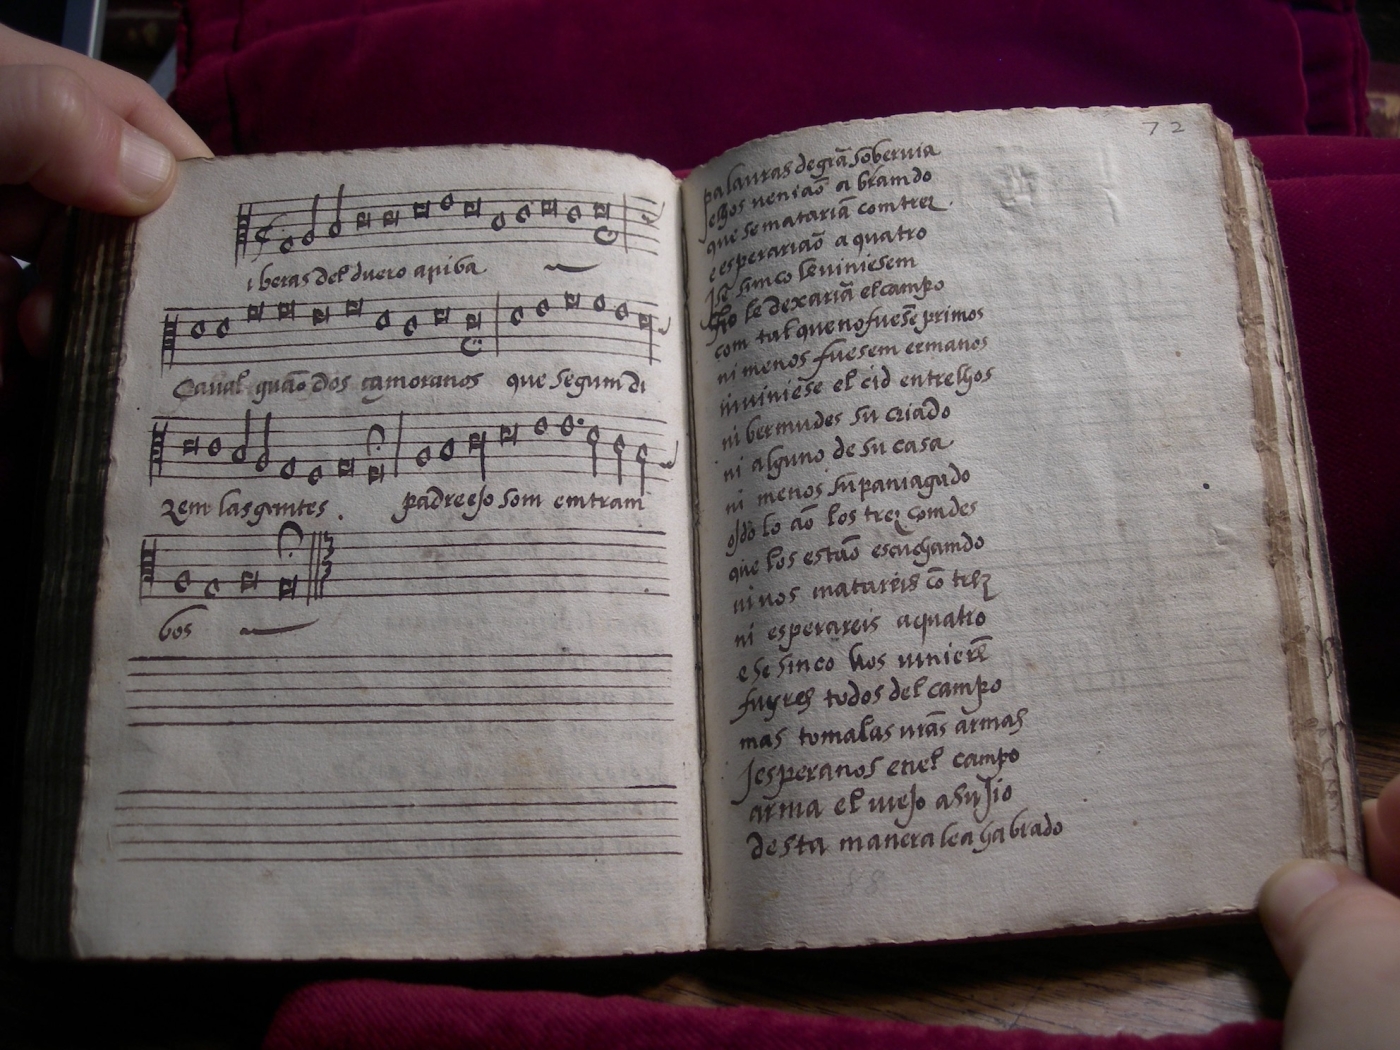 iberas del duero ariba
Caualgauão dos çamoranos que segum di
zem las gentes. padre e jo som emtram
bos
72
palauras de grã sobervia
ejos veniaõ a bramdo
que se matariã com trez.
e esperariaõ a quatro
I se simco le viniesem
no le dexariã el campo
com tal que no fuesẽ primos
ni menos fuesem ermanos
ni viniese el cid entrelhos
ni bermudes su criado
ni alguno de su casa
ni menos su paniagado
oido lo aõ los trez comdes
que los estão escuchamdo
ni vos matareis cõ trez
ni esperareis a quatro
e se sinco vos vinierẽ
fuyres todos del campo
mas tomalas vrãs armas
I esperanos enel campo
arma el viejo a su fijo
desta manera le a habrado
88